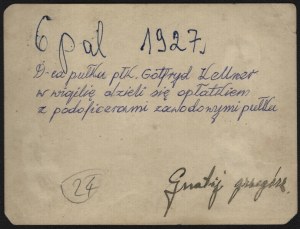 6 pal 1927.
D-ca pułku płk. Gotfryd Kellner
w wigilię dzieli się opłatkiem
z podoficerami zawodowymi pułku
24